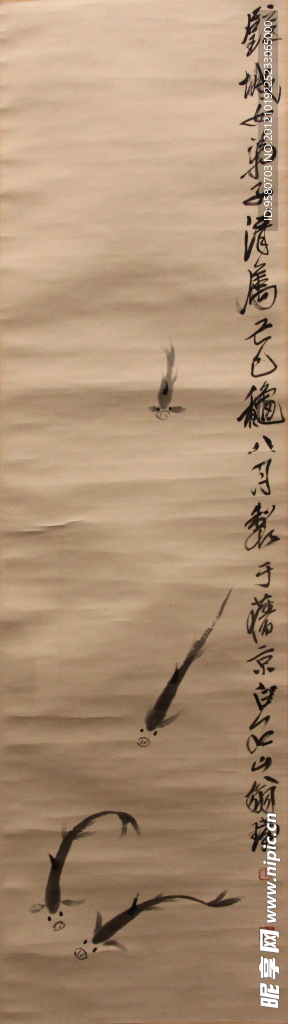 璧城女弟子清属己巳穐八月製于舊京白石山翁璜
ID:9580703 NO:20121019225233065000
昵享网 www.nipic.cn